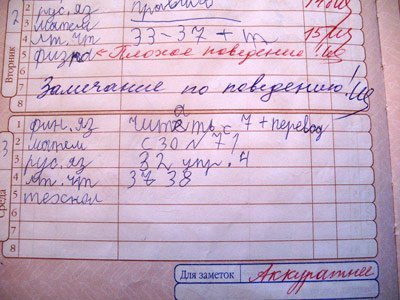 2 рус. яз правило
3 матем
Вторник 4 лит. чт 33-37 + т 15
5 физра < Плохое поведение!
6
7 Замечание по поведению!
8
1 фин. яз читать с 7 + перевод
2 матем с 30 № 71
3 рус. яз 32 упр. 4
4 лит. чт 37 38
Среда 5 технол
8
Для заметок Аккуратнее